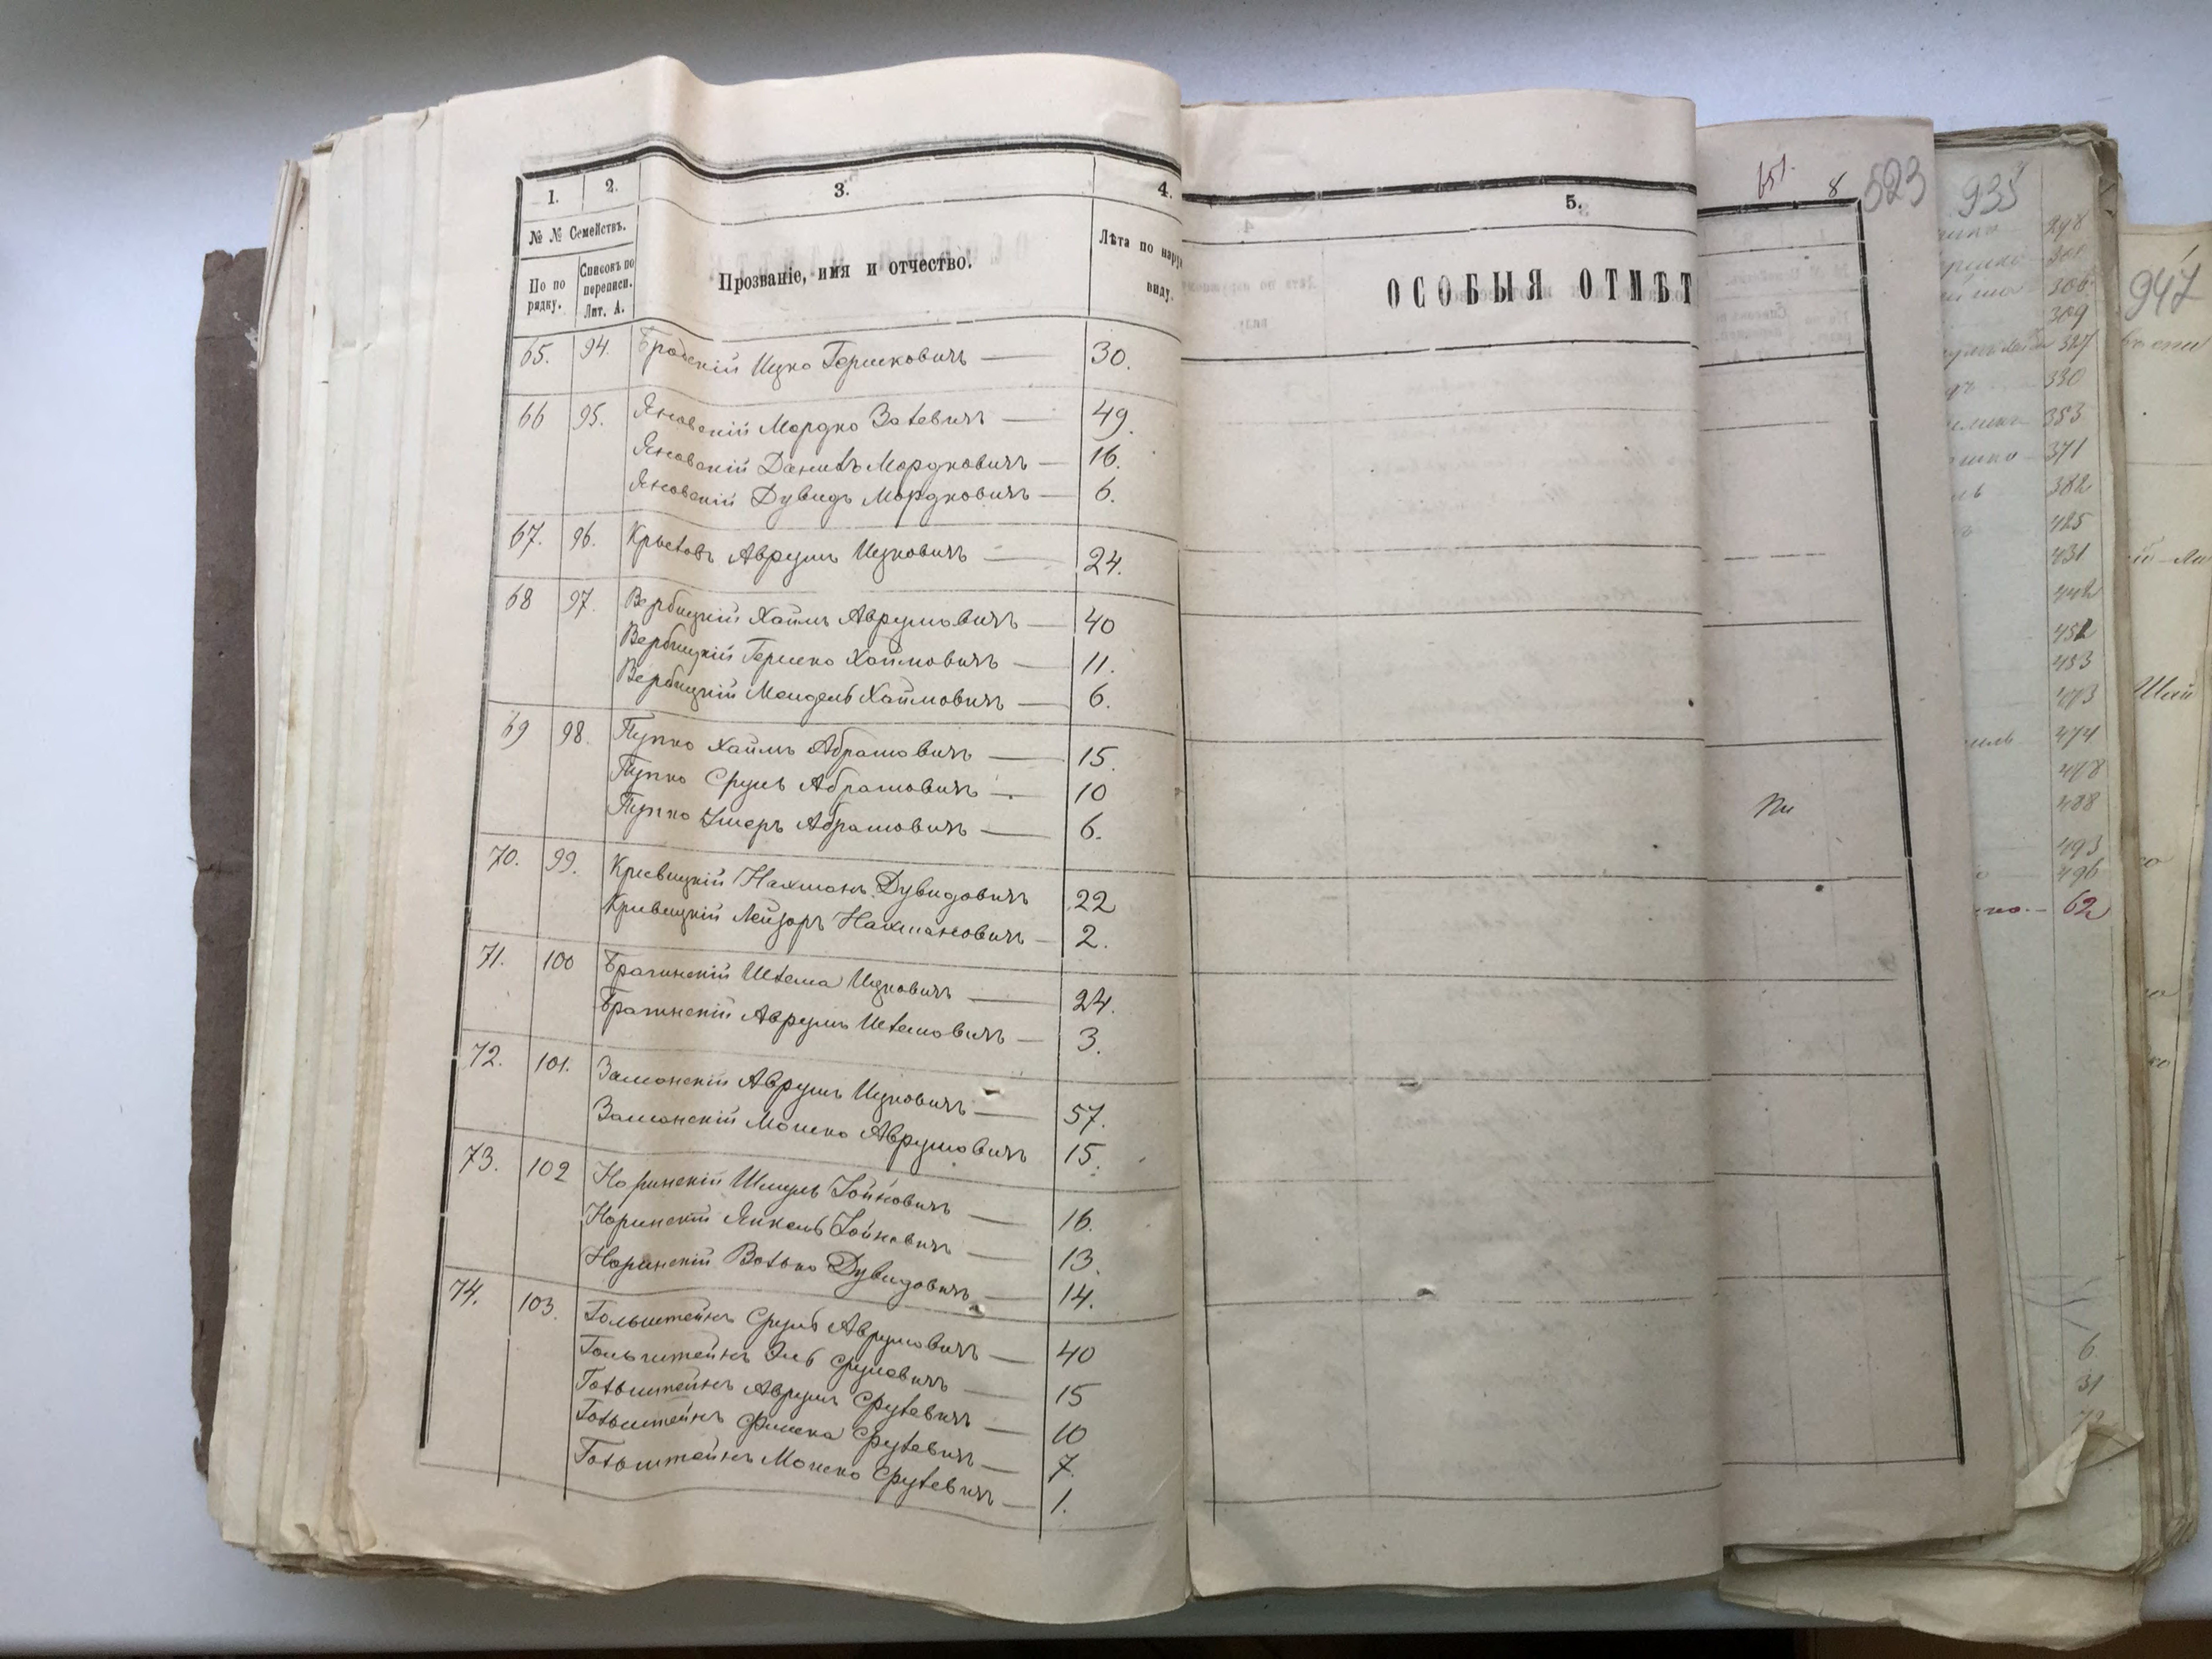 1. 2. 3. 4.
№ № Семействъ.
По по рядку.
Списокъ по переписи. Лит. А.
Прозваніе, имя и отчество.
Лѣта по нару
виду.
65. 94. Бродскій Ицко Гершковичъ — 30.
66 95. Яновскій Мордко Волевичъ — 49.
Яновскій Данилъ Мордковичъ — 16.
Яновскій Дувидъ Мордковичъ — 6.
67. 96. Крыловъ Аврумъ Ицковичъ — 24.
68 97. Вербицкій Хаимъ Аврумовичъ — 40
Вербицкій Гершко Хаймовичъ — 11.
Вербицкій Мендель Хаймовичъ — 6.
69 98. Пупко Хаимъ Абрамовичъ — 15.
Пупко Сруль Абрамовичъ — 10
Пупко Абрамовичъ — 6.
70. 99. Кривицкій Нахманъ Дувидовичъ 22
Кривицкій Лейзоръ Нахмановичъ — 2.
71. 100 Брагинскій Шлема Ицковичъ — 24.
Брагинскій Аврумъ Шлемовичъ — 3.
72. 101. Заманскій Аврумъ Ицковичъ — 57.
Заманскій Мошко Аврумовичъ 15.
73. 102 Норинскій Шмуль Іойновичъ — 16.
Норинскій Янкель Іойновичъ — 13.
Норинскій Волько Дувидовичъ — 14.
74. 103. Гольштейнъ Сруль Аврумовичъ — 40
Гольштейнъ Эль Срулевичъ — 15
Гольштейнъ Аврумъ Срулевичъ — 10
Гольштейнъ Фишка Срулевичъ — 7.
Гольштейнъ Мошко Срулевичъ — 1.
5.
ОСОБЫЯ ОТМѢТ
651. 8
523
935
298
309
327
330
353
371
382
425
431
442
452
453
473
474
478
488
493
496
62
6
31
947
Шай